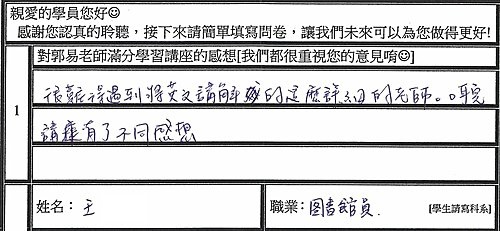 親愛的學員您好☺
感謝您認真的聆聽，接下來請簡單填寫問卷，讓我們未來可以為您做得更好!
對郭易老師滿分學習講座的感想[我們都很重視您的意見唷☺]
1
很難得遇到將英文講解的這麼詳細的老師。聽
講座有了不同感想
姓名：王
職業：圖書館員. [學生請寫科系]